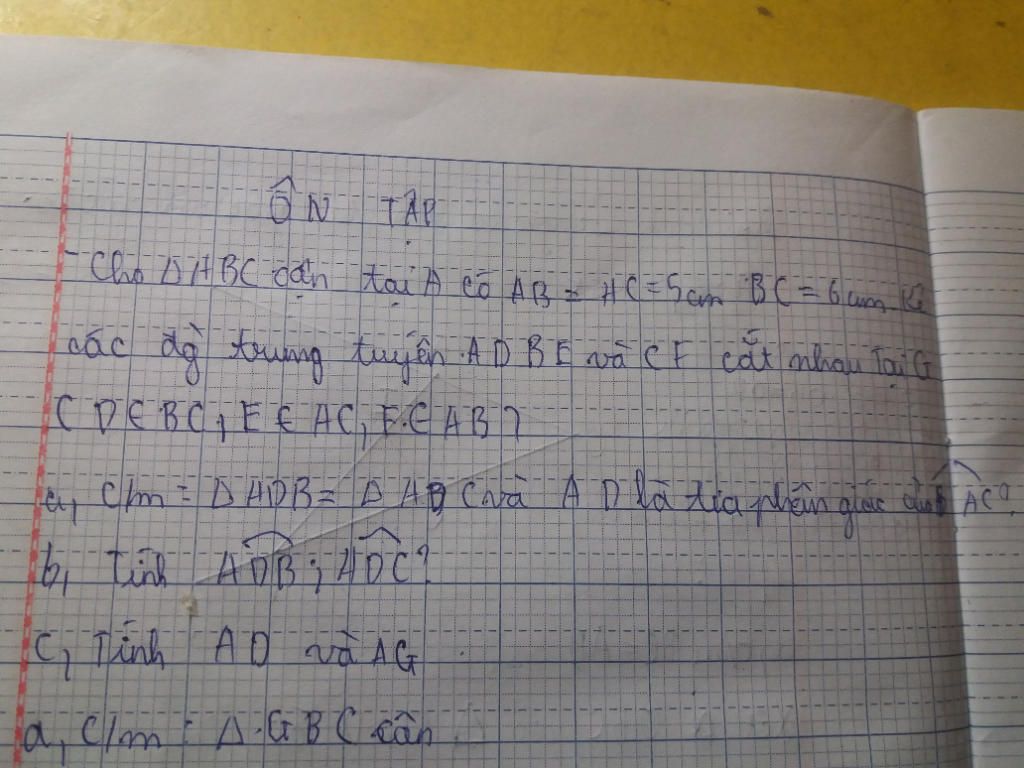 ÔN TẬP
- Cho ΔABC cân tại A có AB = AC = 5cm BC = 6cm Kẻ
các đg trung tuyến AD BE và CF cắt nhau tại G
( D ∈ BC, E ∈ AC, F ∈ AB )
a, C/m : ΔADB = ΔADC và AD là tia phân giác của BAC
b, Tính ADB ; ADC ?
c, Tính AD và AG
d, C/m : Δ GBC cân